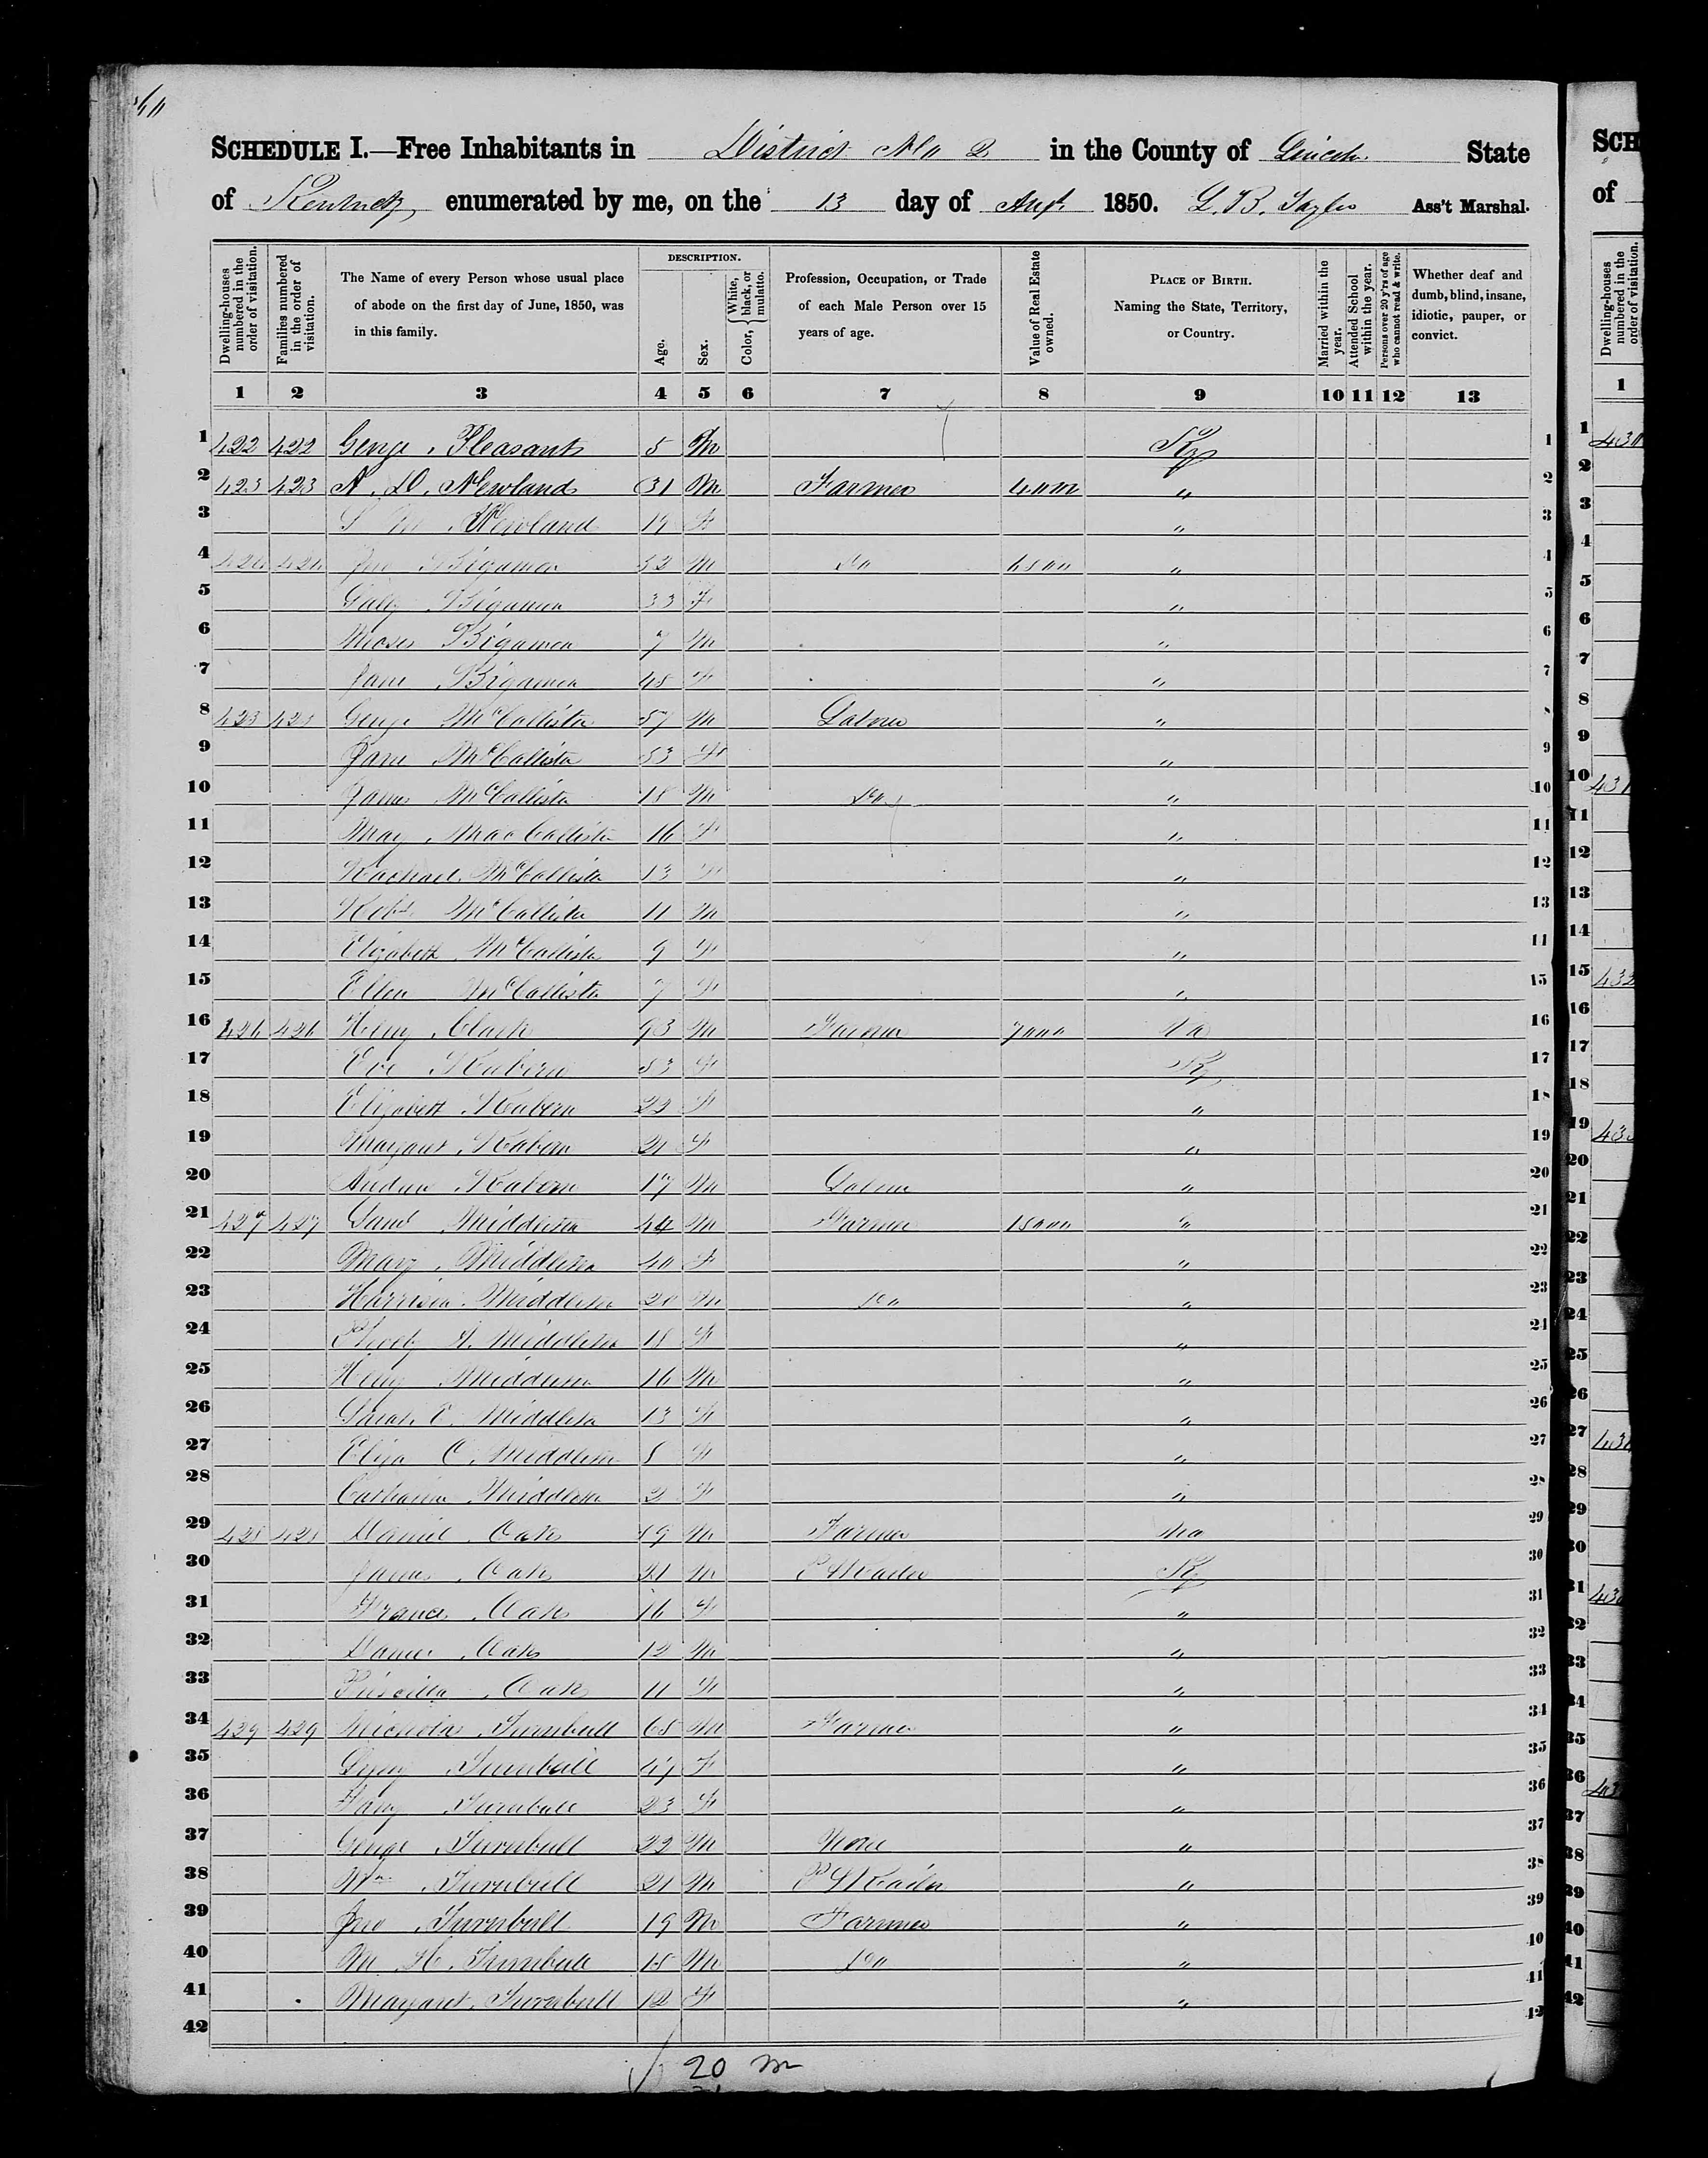 SCHEDULE I.—Free Inhabitants in District No 2 in the County of Lincoln State
of Kentucky enumerated by me, on the 13 day of Augt 1850. L. B. Taylor Ass't Marshal.
Dwelling-houses numbered in the order of visitation.
Families numbered in the order of visitation.
The Name of every Person whose usual place of abode on the first day of June, 1850, was in this family.
DESCRIPTION.
Age.
Sex.
Color, { White, black, or mulatto.
Profession, Occupation, or Trade of each Male Person over 15 years of age.
Value of Real Estate owned.
PLACE OF BIRTH. Naming the State, Territory, or Country.
Married within the year.
Attended School within the year.
Persons over 20 y'rs of age who cannot read & write.
Whether deaf and dumb, blind, insane, idiotic, pauper, or convict.
1 2 3 4 5 6 7 8 9 10 11 12 13
1 422 422 George Pleasants 5 M Ky 1
2 423 423 A. D. Newland 31 M Farmer 4000 " 2
3 S M Newland 19 F " 3
4 424 424 Jno Bigamon 52 M Do 6500 " 4
5 Bigamon 33 F " 5
6 Moses Bigamon 7 M " 6
7 Jane Bigamon 45 F " 7
8 425 425 George McCallister 57 M Labour " 8
9 Jane McCallister 53 F " 9
10 James McCallister 18 M Do " 10
11 Mary MacCallister 16 F " 11
12 Rachael McCallister 13 F " 12
13 Robt McCallister 11 M " 13
14 Elizabeth McCallister 9 F " 14
15 Ellen McCallister 7 F " 15
16 426 426 Henry Clack 93 M Farmer 7000 Va 16
17 Eve 53 F Ky 17
18 Elizabeth 22 F " 18
19 Margaret 21 F " 19
20 Andrew 17 M Labour " 20
21 427 427 Saml Middleton 44 M Farmer 15000 " 21
22 Mary Middleton 40 F " 22
23 Harrison Middleton 20 M Do " 23
24 A. Middleton 18 F " 24
25 Henry Middleton 16 M " 25
26 Sarah E. Middleton 13 F " 26
27 Eliza C. Middleton 8 F " 27
28 Catharine Middleton 2 F " 28
29 428 428 Daniel Oaks 59 M Farmer 29
30 James Oaks 21 M Ky 30
31 Frances Oaks 16 F " 31
32 Oaks 12 M " 32
33 Priscilla Oaks 11 F " 33
34 429 429 Nicholas Turnbull 65 M Farmer " 34
35 Turnbull 47 F " 35
36 Fany Turnbull 23 F " 36
37 George Turnbull 22 M None " 37
38 Wm Turnbull 21 M " 38
39 Jno Turnbull 19 M Farmer " 39
40 H. Turnbull 15 M Do " 40
41 Margaret Turnbull 12 F " 41
42 42
20 m
SCH
of
Dwelling-houses numbered in the order of visitation.
1